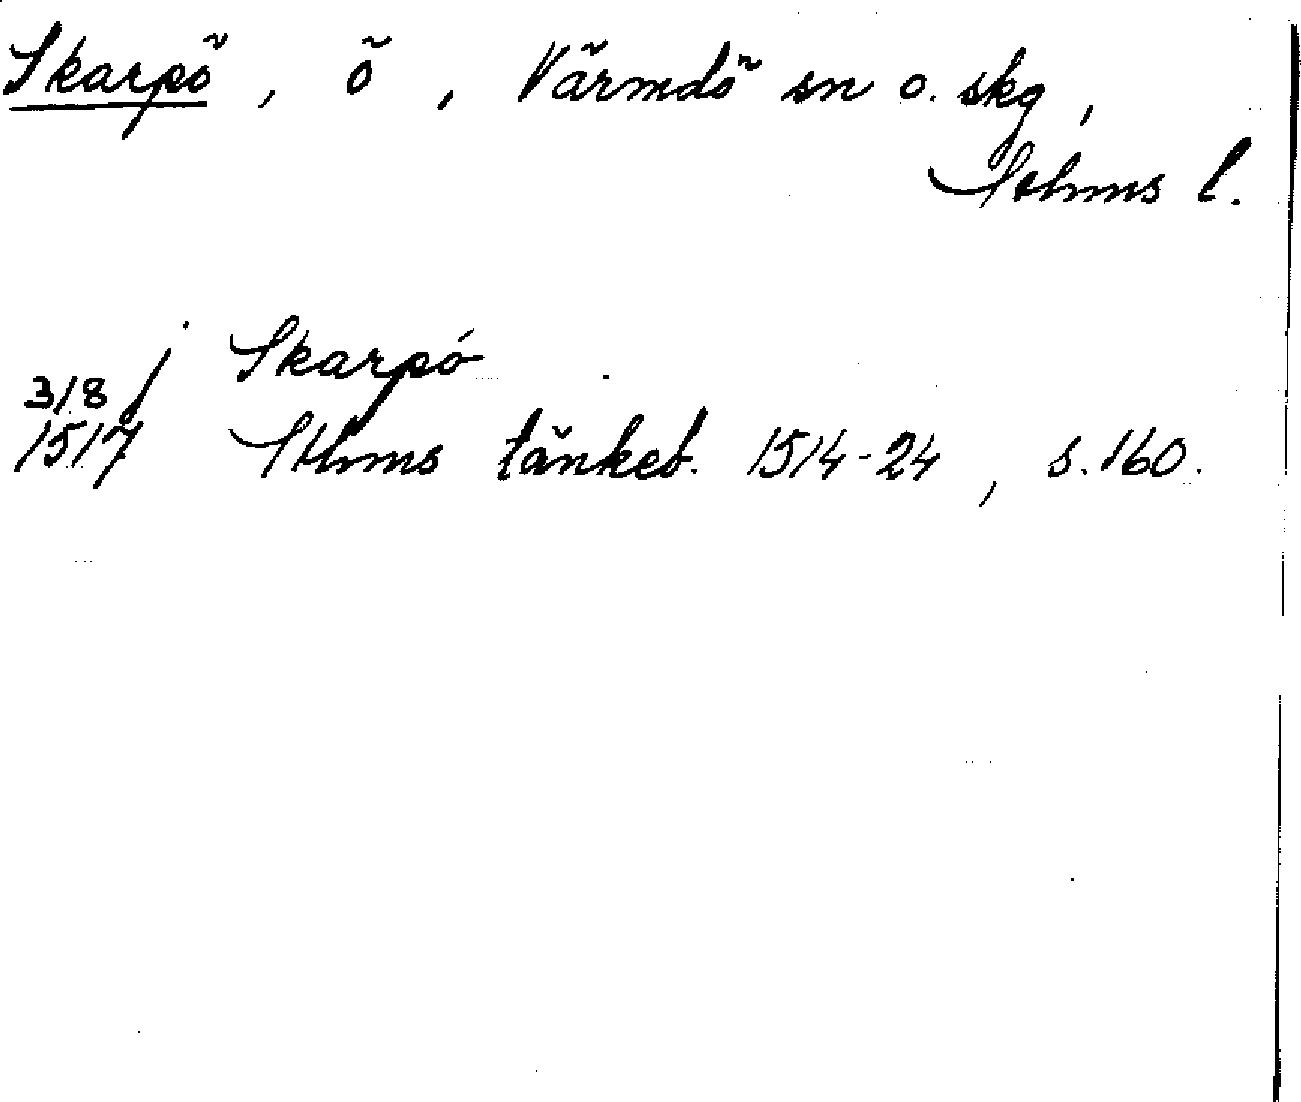 Skarpö, ö, Värmdö sn o. skg,
Sthms l.
j Skarpó
3/8 1517 Sthms tänkeb. 1514-24, s. 160.